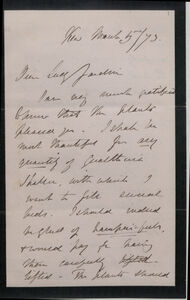 Kew March 5/73
Dear Lady
I am very much gratified
to know that the plants
pleased you. I shall be
most thankful for any
quantity of Gaultheria
Shallon, with which I
want to fill several
beds. I should indeed
be glad of
& would pay for having
them carefully lifted
lifted - The plants should